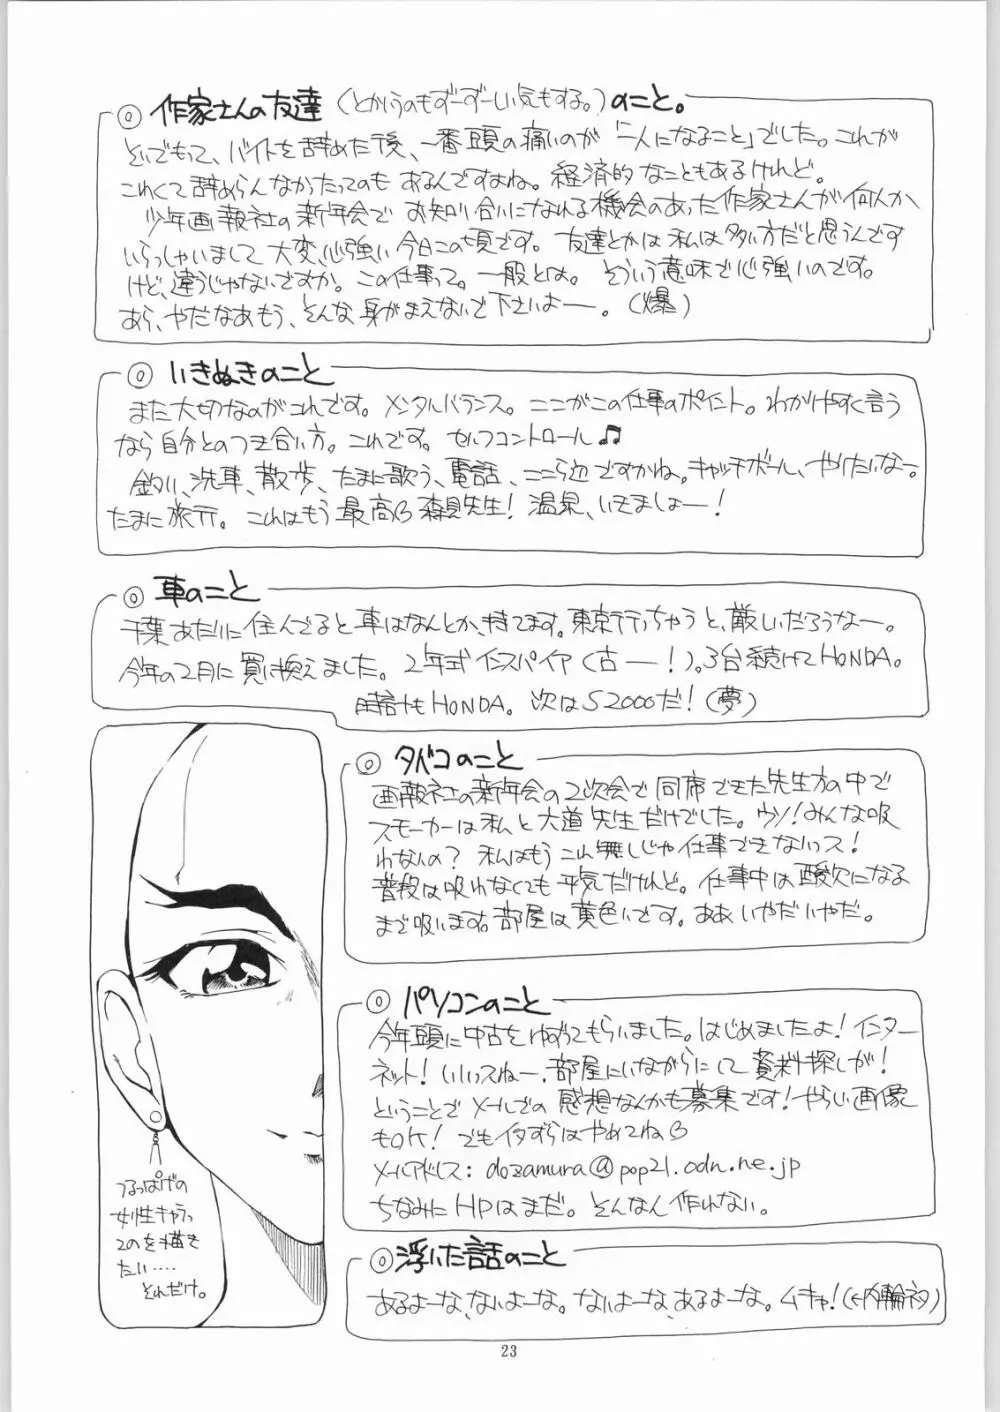 ◎ 作家さんの友達(とかいうのもずーずーしい気もする。)のこと。
といでもって、バイトを辞めた後、一番頭の痛いのが「一人になること」でした。これが
これくて辞めらんなかったってのもあるんですよね。経済的なこともあるけれど。
少年画報社の新年会でお知り合いになれる機会のあった作家さんが何人か、
いらっしゃいまして大変、心強い今日この頃です。友達とかは私は多い方だと思うんです
けど、違うじゃないですか。この仕事って。一般とは。そういう意味で心強いのです。
あら、やだなあもう、そんな身がまえないで下さいよー。(爆)
◎ いきぬきのこと
また大切なのがこれです。メンタルバランス。ここがこの仕事のポイント。わかりやすく言う
なら自分とのつき合い方。これです。セルフコントロール♫
釣り、洗車、散歩、たまに歌う、電話、ここら辺ですかね。キャッチボール、やりたいなー。
たまに旅行。これはもう最高 森見先生!温泉、いきましょー!
◎ 車のこと
千葉あたりに住んでると車はなんとか、持てます。東京行っちゃうと、厳しいだろうなー。
今年の2月に買い換えました。2年式インスパイア(古ー!)。3台続けてHONDA。
時計もHONDA。次はS2000だ!(夢)
◎ タバコのこと
画報社の新年会の2次会で同席できた先生方の中で
スモーカーは私と大道先生だけでした。ウソ!みんな吸
わないの?私はもうこれ無しじゃ仕事できないっス!
普段は吸わなくても平気だけれど。仕事中は酸欠になる
まで吸います。部屋は黄色いです。ああいやだいやだ。
◎ パソコンのこと
今年頭に中古をゆずってもらいました。はじめましたよ!インター
ネット!いいっスねー、部屋にいながらにして資料探しが!
ということでメールでの感想なんかも募集です!やらしい画像
もOK!でもイタずらはやめてね
メールアドレス: dozamura@pop21.odn.ne.jp
ちなみにHPはまだ。そんなん作れない。
つるっぱげの
女性キャラっ
てのを描き
たい‥‥
それだけ。
◎ 浮いた話のこと
あるよーな、ないよーな。ないよーな、あるよーな。ムキャ!(←内輪ネタ)
23